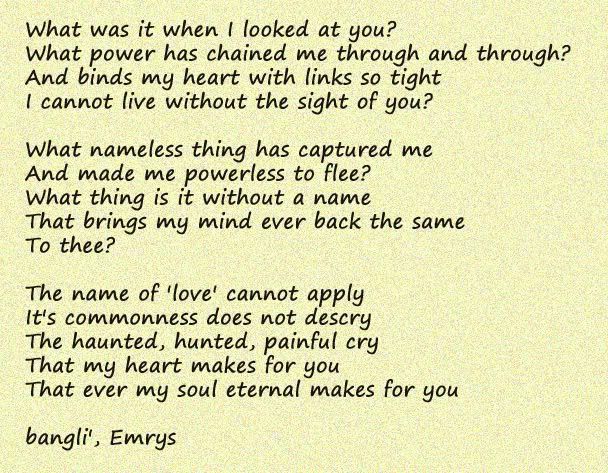 What was it when I looked at you?
What power has chained me through and through?
And binds my heart with links so tight
I cannot live without the sight of you?
What nameless thing has captured me
And made me powerless to flee?
What thing is it without a name
That brings my mind ever back the same
To thee?
The name of 'love' cannot apply
It's commonness does not descry
The haunted, hunted, painful cry
That my heart makes for you
That ever my soul eternal makes for you
bangli', Emrys